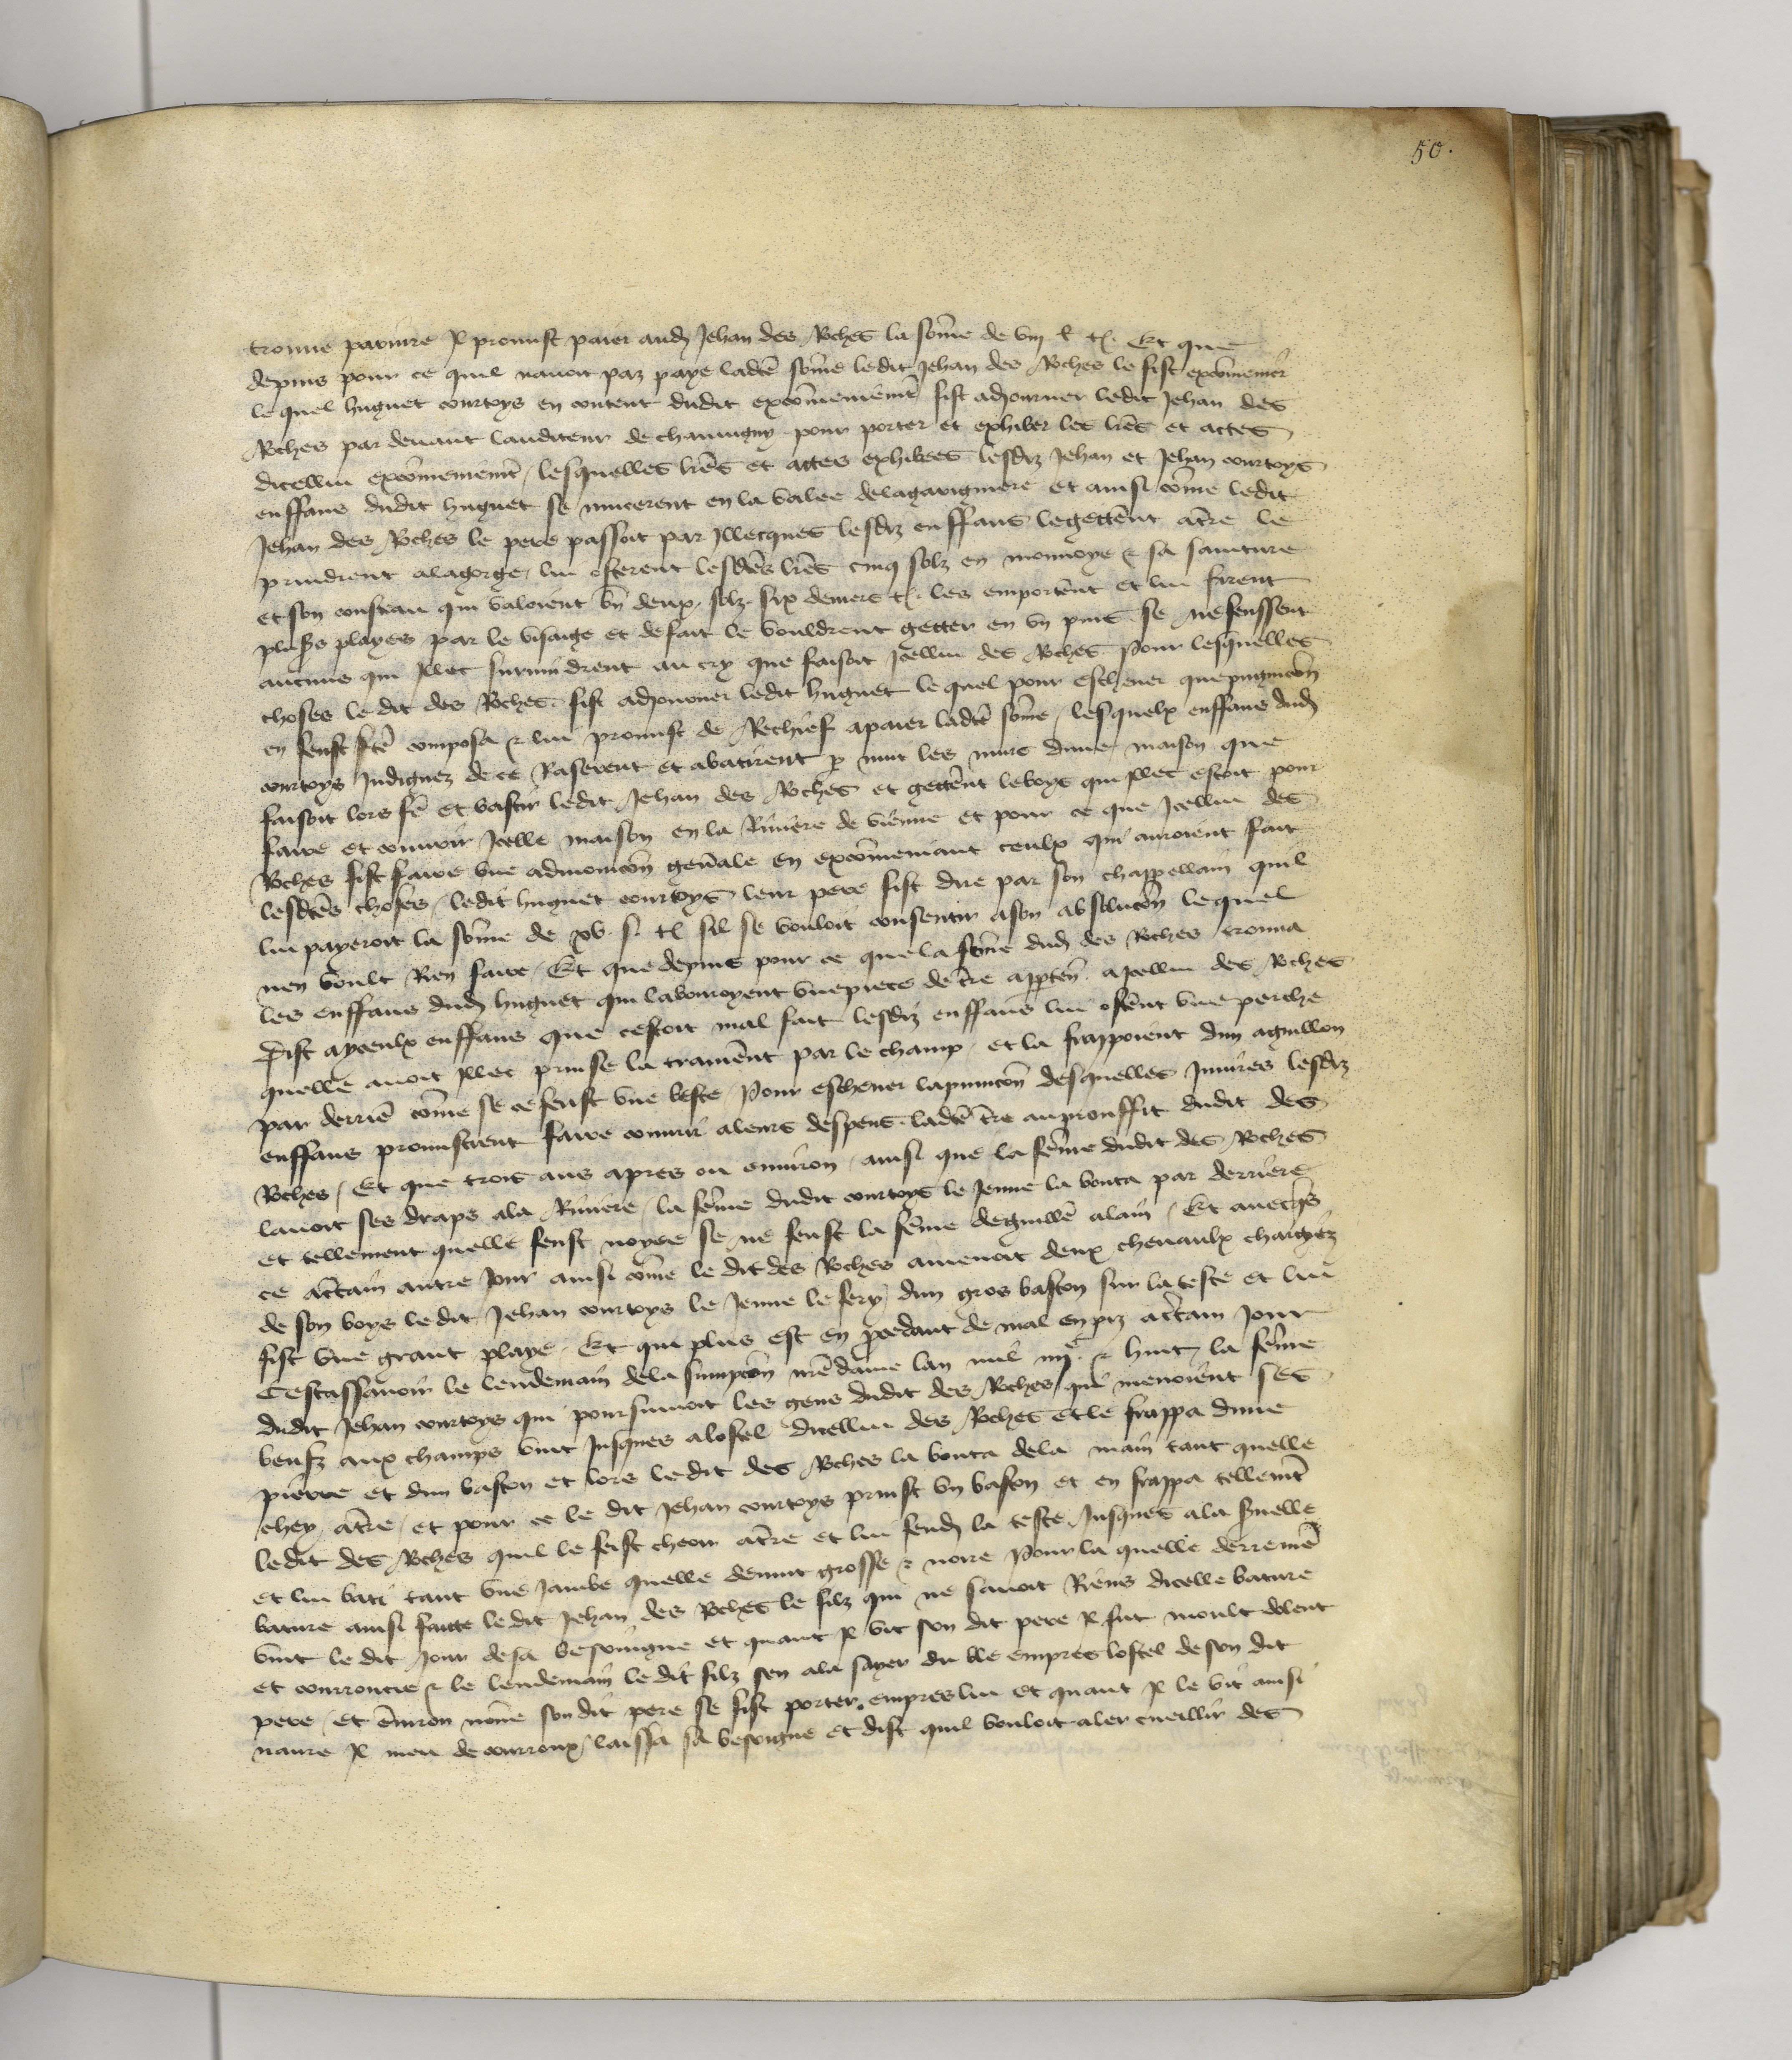 50.
trouve parjure Il promist paier aud Jehan des Roches la some de viij l t. Et que
depuis pour ce quil navoit paz paye ladte some ledit Jehan des Roches le fist excomenier
le quel huguet courtoys en content dudit excomeniement fist adjourner ledit Jehan des
Roches par devant lauditeur de chauvigny pour porter et exhiber les lres et actes
dicellui excomeniemt / lesquelles lres et actes exhibees lesdiz Jehan et Jehan courtoys
enffans dudit huguet se mucerent en la valee delagarigniere et ainsi come ledit
Jehan des Roches le pere passoit par Illecques lesdiz enffans legetterent atre le
prindrent alagorge lui osterent lesdtes lres cinq solz en monnoye & sa saincture
et son cousteau qui valoient bn deux solz six deniers t. les emporterent et lui firent
plus playes par le visaige et defait le vouldrent getter en vn puis se nefeussent
aucuns qui Illec survindrent au cry que faisoit Icellui des Roches Pour lesquelles
choses le dit des Roches fist adjourner ledit huguet le quel pour eschever que pugnicon
en feust fte composa & lui promist de Rechief apaier ladte some / lesquelx enffans dud
courtoys Indignez de ce Raserent et abatirent p nuit les murs dune maison que
faisoit lors fe et bastir ledit Jehan des Roches et getterent leboys qui Illec estoit pour
faire et couvrir Icelle maison en la Riviere de vienne et pour ce que Icellui des
Roches fist faire vne admonicon genale en excomeniant ceulx qui auroient fait
lesdtes choses / ledit huguet courtoys leur pere fist dire par son chappellain quil
lui payeroit la some de xv. s. t. sil se vouloit consentir ason absolucon lequel
nen voult Rien faire / Et que depuis pour ce que la feme dud des Roches trouva
les enffans dud huguet qui labouroyent vnepiece de tre apparten aicellui des Roches
dist ayceulx enffans que cestoit mal fait lesdiz enffans lui osterent vne perche
quelle avoit Illec prinse la trainerent par le champ / et la frappoient dun aguillon
par derrie come se ce feust vne beste / Pour eschever lapunicon desquelles Injures lesdiz
enffans promistrent faire couvrir aleurs despens ladte tre auprouffit dudit des
Roches / Et que trois ans apres ou environ / ainsi que la feme dudit des Roches
lavoit ses draps ala Riviere / la feme dudit courtoys le Jenne la bouta par derriere
et tellement quelle feust noyee se ne feust la feme deguille alain / Et avecqs
ce actain autre Jour ainsi come le dit des Roches amenoit deux chevaulx chargez
de son boys le dit Jehan courtoys le Jenne le fery dun gros baston sur la teste et lui
fist vne grant playe / Et qui plus est en pcedant de mal en piz actain Jour
Cestassavoir le lendemain dela sumpcon nre dame lan mil iiijc & huit / la feme
dudit Jehan courtoys qui poursuivoit les gens dudit des Roches / qui menoient ses
beufz aux champs vint Jusques alostel dicellui des Roches et le frappa dune
pierre et dun baston et lors ledit des Roches la bouta dela main tant quelle
chey atre / et pour ce le dit Jehan courtoys prinst vn baston et en frappa tellemt
ledit des Roches quil le feist cheoir atre et lui fendy la teste Jusques ala
et lui bati tant vne Jambe quelle devint grosse & noire Pour la quelle derreme
bature ainsi faitte ledit Jehan des Roches le filz qui ne savoit Riens dicelle bature
vint le dit Jour de sa besoingne et quant Il vit son dit pere Il fut moult dolent
et courroucie & le lendemain le dit filz sen ala sayer du ble empres lostel de son dit
pere / et environ nonne son dit pere se fist porter empres lui et quant Il le vit ainsi
navre Il meu de courroux / laissa sa besongne et dist quil vouloit aler cueillir des